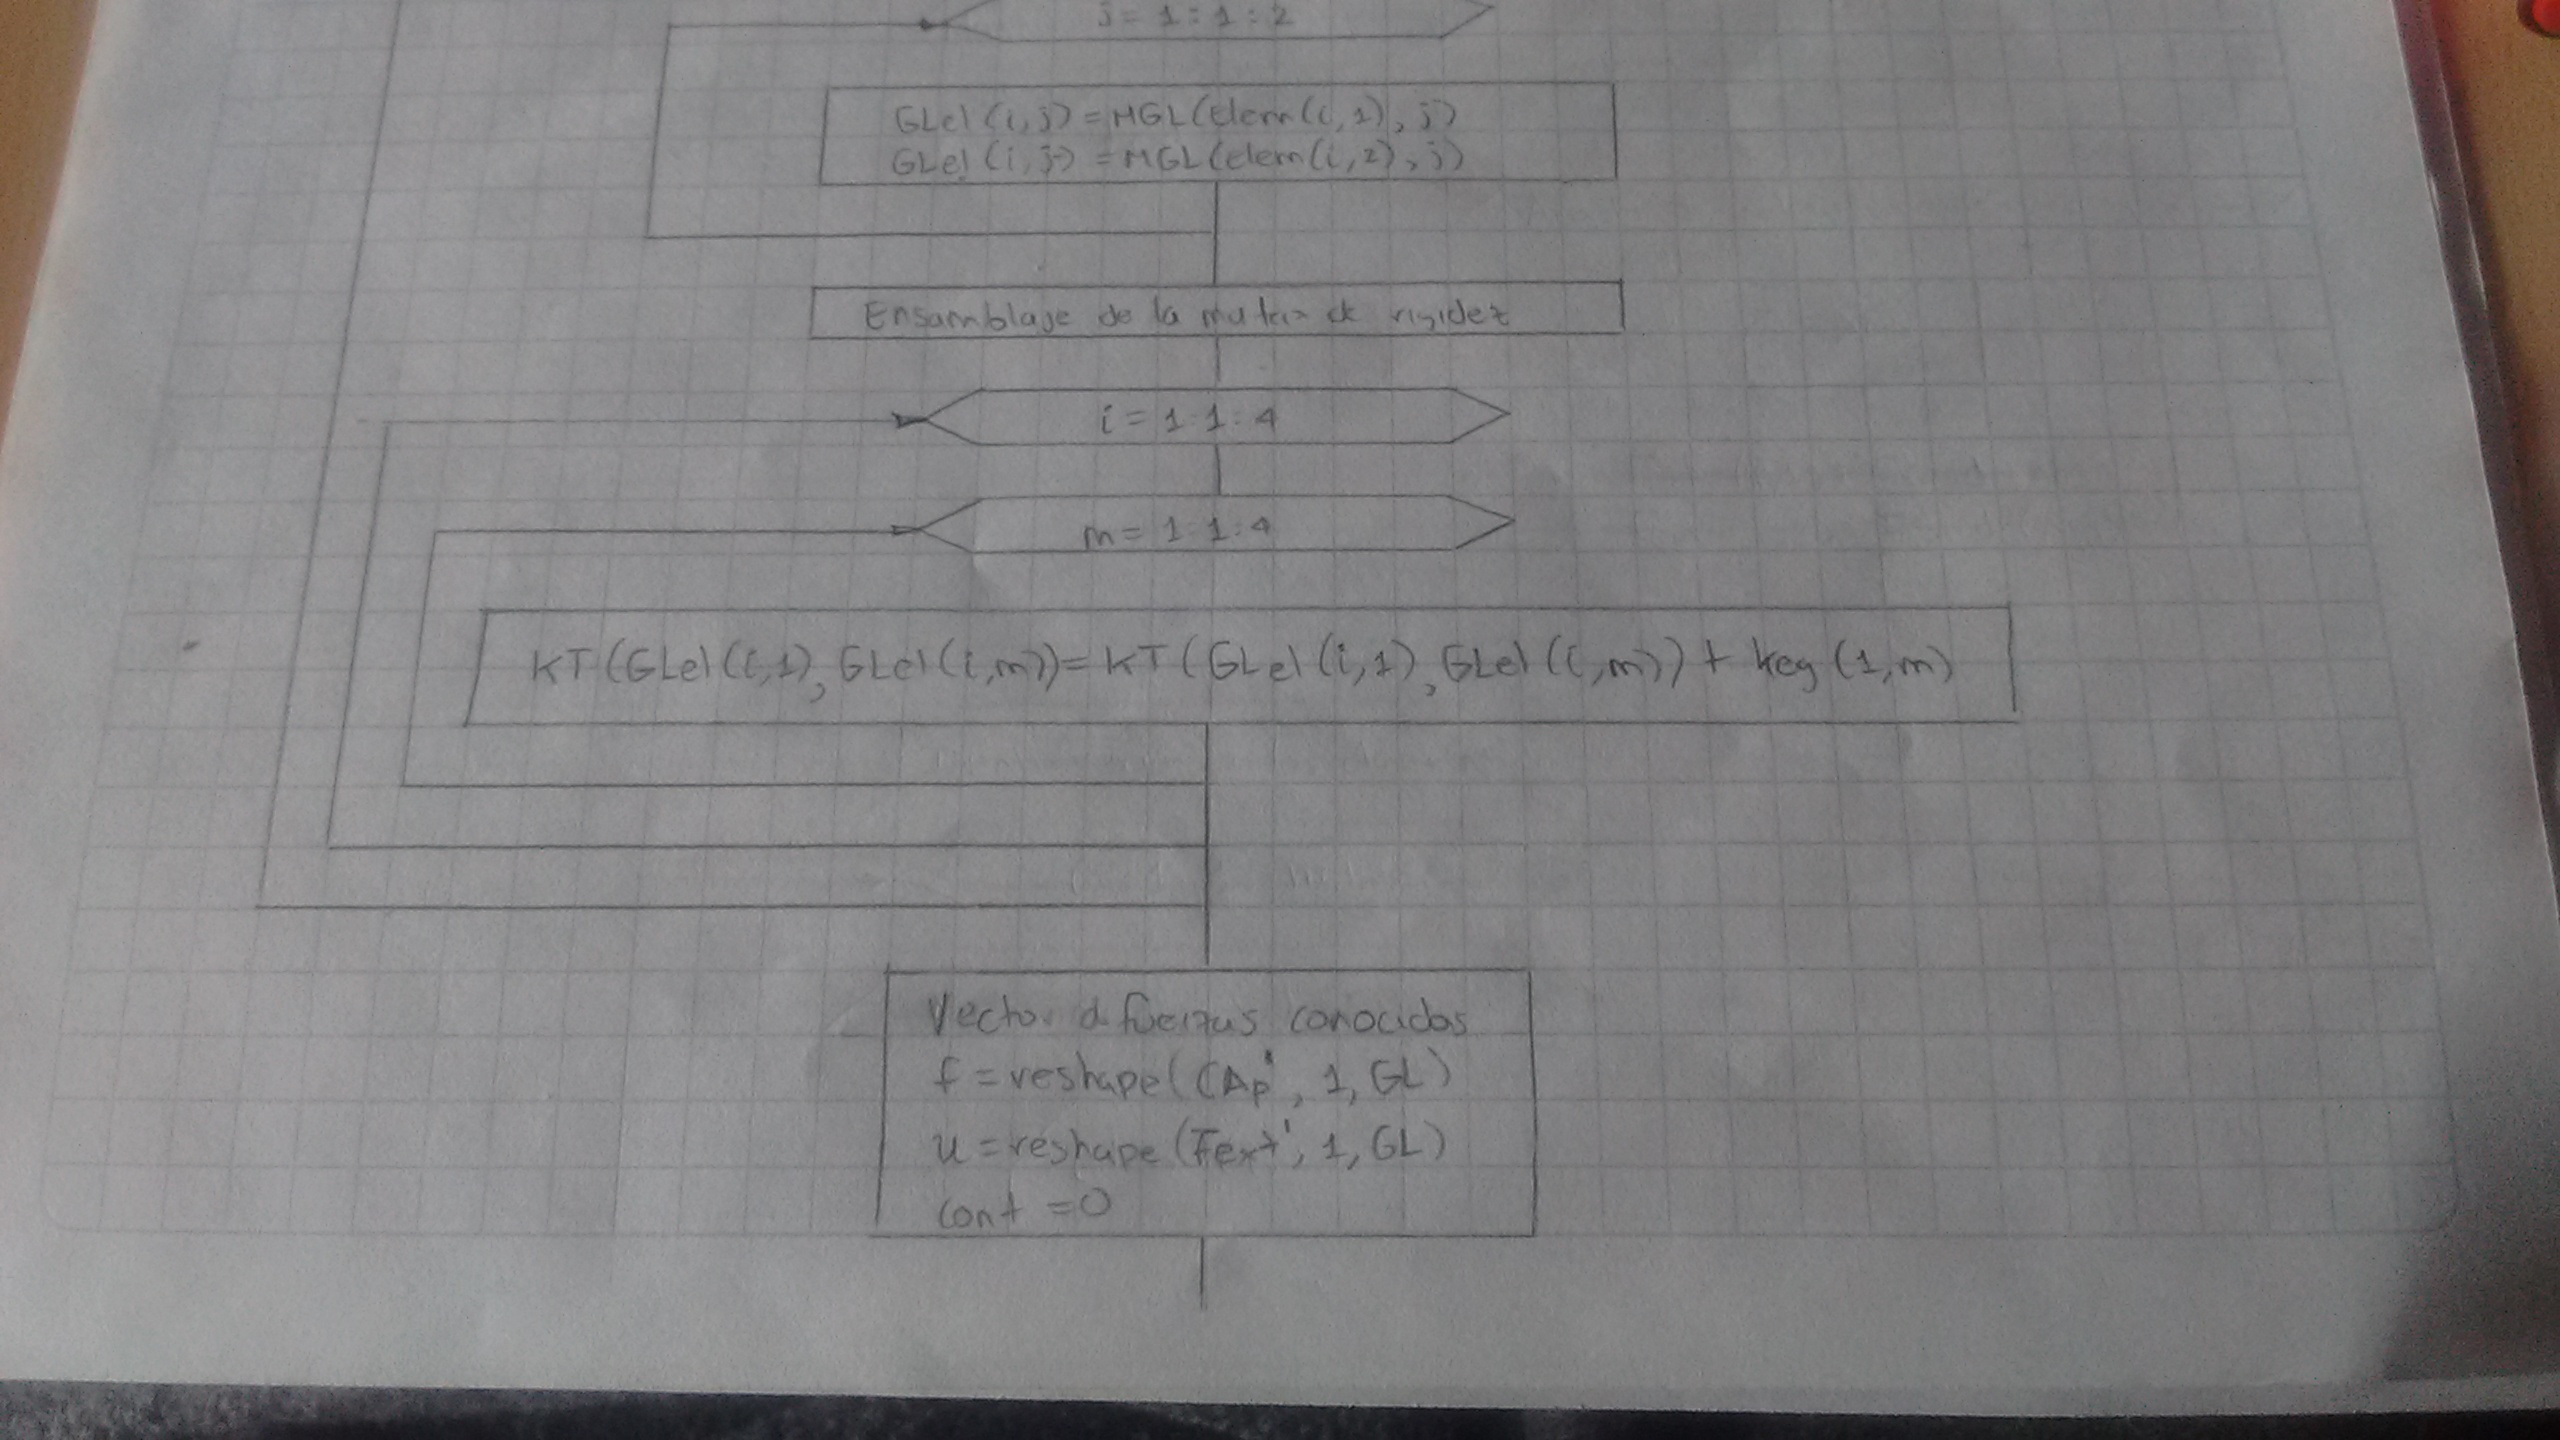 j = 1 : 1 : 2
GLel (i, j) = MGL(Elem(i, 1), j)
GLel (i, j) = MGL(elem(i, 2), j)
Ensamblaje de la matriz de rigidez
i = 1:1:4
m = 1:1:4
KT(GLel(i,1), GLel(i,m)) = KT(GLel(i,1), GLel(i,m)) + keg(1,m)
Vector d fuerzas conocidas
f = reshape(CAp', 1, GL)
u = reshape(Fext', 1, GL)
cont = 0